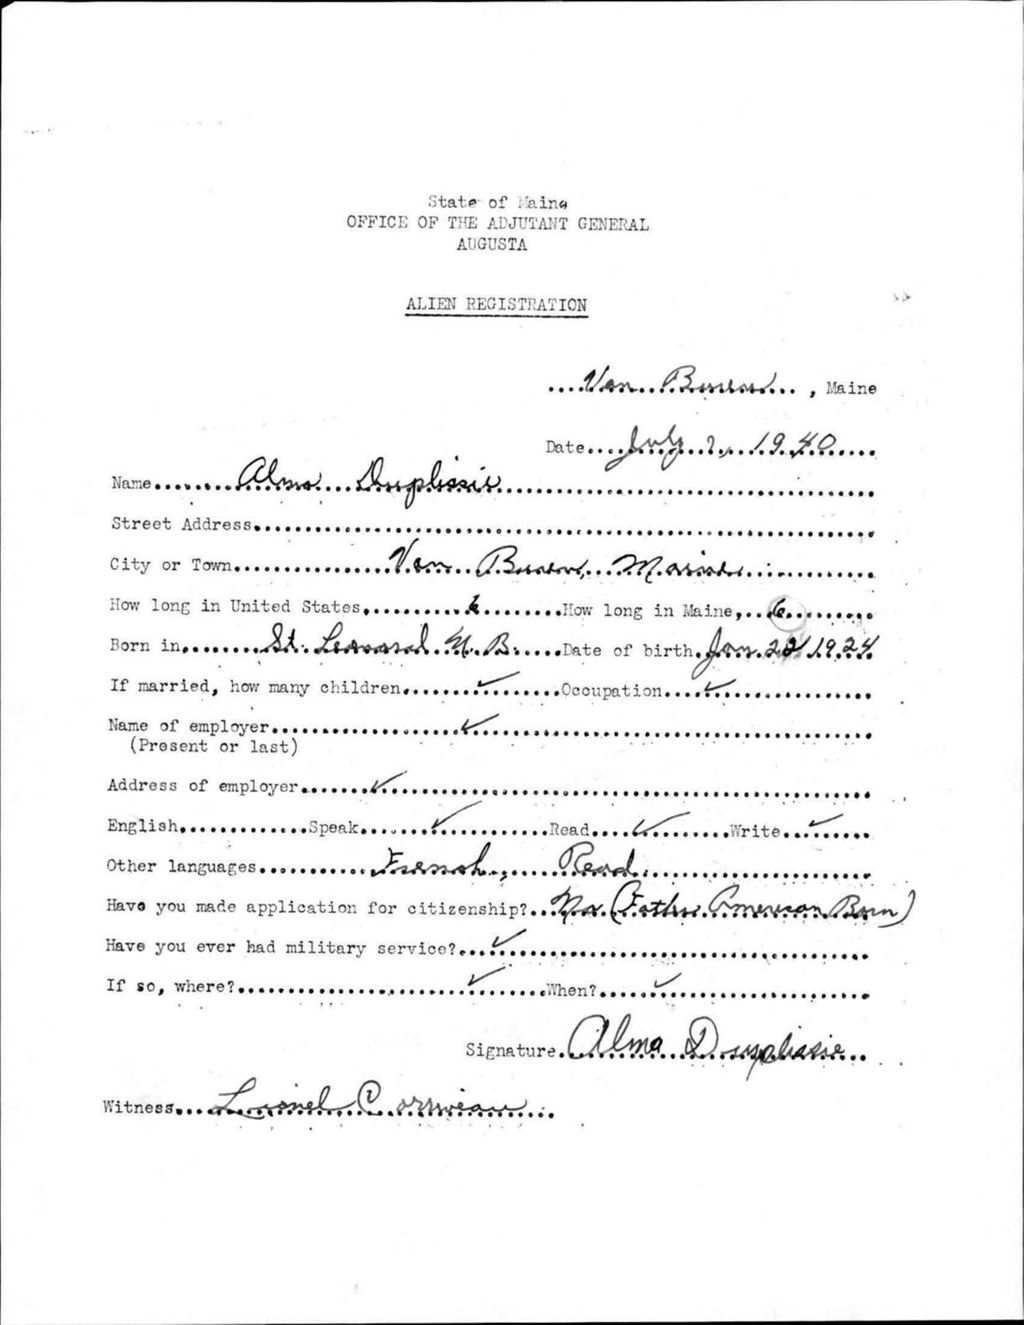 State of Maine
OFFICE OF THE ADJUTANT GENERAL
AUGUSTA
ALIEN REGISTRATION
Van Buren, Maine
Date July 2, 1940
Name Alma Duplissie
Street Address
City or Town Van Buren, Maine
How long in United States 6 How long in Maine 6
Born in St. Leonard N. B. Date of birth Jan. 22 1924
If married, how many children ✓ Occupation ✓
Name of employer ✓
(Present or last)
Address of employer ✓
English Speak ✓ Read ✓ Write ✓
Other languages French, Read
Have you made application for citizenship? No (Father American Born)
Have you ever had military service? ✓
If so, where? ✓ When? ✓
Signature Alma Duplissie
Witness Lionel